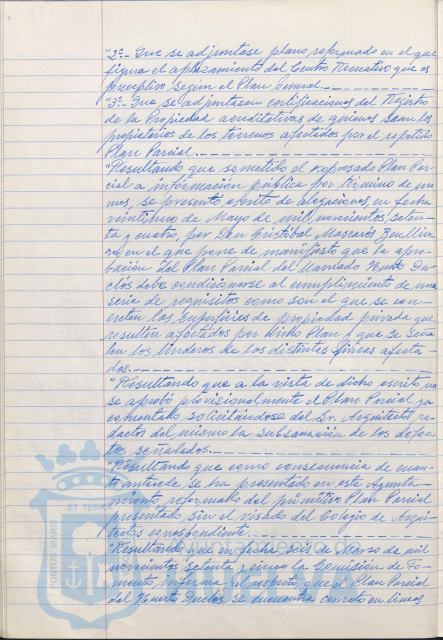 "2º.- Que se adjuntase plano reformado en el que
figure el aplazamiento del Centro Recreativo que es
preceptivo según el Plan General.
"3º.- Que se adjuntasen certificaciones del Registro
de la Propiedad acreditativas de quienes sean los
propietarios de los terrenos afectados por el repetido
Plan Parcial.
"Resultando que sometido el expresado Plan Par-
cial a información pública por término de un
mes, se presentó escrito de alegaciones en fecha
veintiuno de Mayo de mil novecientos seten-
ta y cuatro, por Don Cristóbal Mascarós
en el que pone de manifiesto que la apro-
bación del Plan Parcial del llamado Huerto Du-
clós debe condicionarse al cumplimiento de una
serie de requisitos como son el que se con-
creten las superficies de propiedad privada que
resulten afectados por dicho Plan y que se seña-
len los linderos de las distintas fincas afecta-
das.
"Resultando que a la vista de dicho escrito no
se aprobó provisionalmente el Plan Parcial ya
comentado solicitándose del Sr. Arquitecto re-
dactor del mismo la subsanación de los defec-
tos señalados.
"Resultando que como consecuencia de cuan-
to antecede se ha presentado en este Ayunta-
miento, reformado del primitivo Plan Parcial
presentado sin el visado del Colegio de Arqui-
tectos correspondiente.
"Resultando que en fecha seis de Marzo de mil
novecientos setenta y cinco la Comisión de Fo-
mento informa al respecto que el Plan Parcial
del Huerto Duclós se encuentra correcto en líneas
PORTUS MARIS
ET TERRA